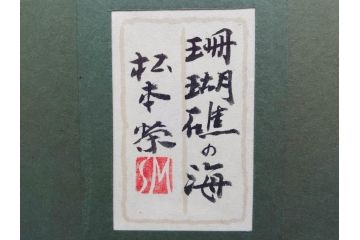 珊瑚礁の海
松本栄
SM